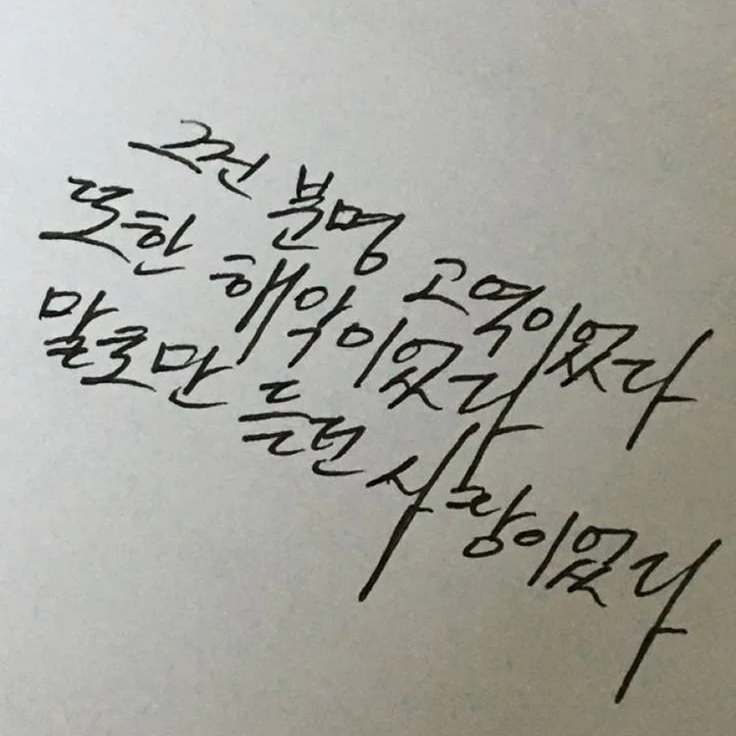 그건 분명 고역이었다
또한 해악이었다
말로만 듣던 사랑이었다